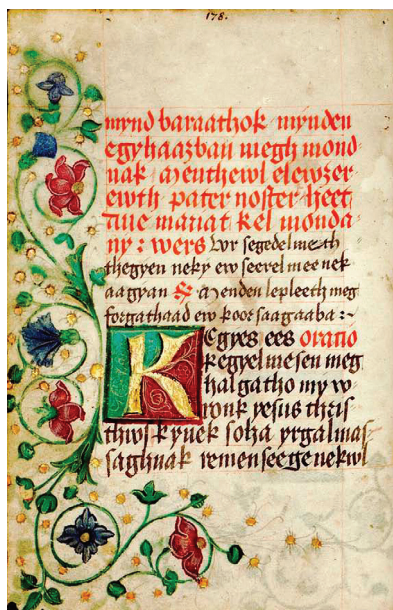 178.
mynd baraathok mynden
egyhaazban megh mond-
nak Menthewl elewzer
ewth pater noster heet
twe mariat kel monda-
ny : wers Wr segedelmeeth
thegyen neky ew seerelmeenek
aagyan Menden lepleeth meg
forgathaad ew koorsaagaaba :~
Kegyes ees oratio
kegyelmesen meg
halgatho my w-
ronk yesus chris-
thws kynek soha yrgalmas-
saghnak remenseege nekwl